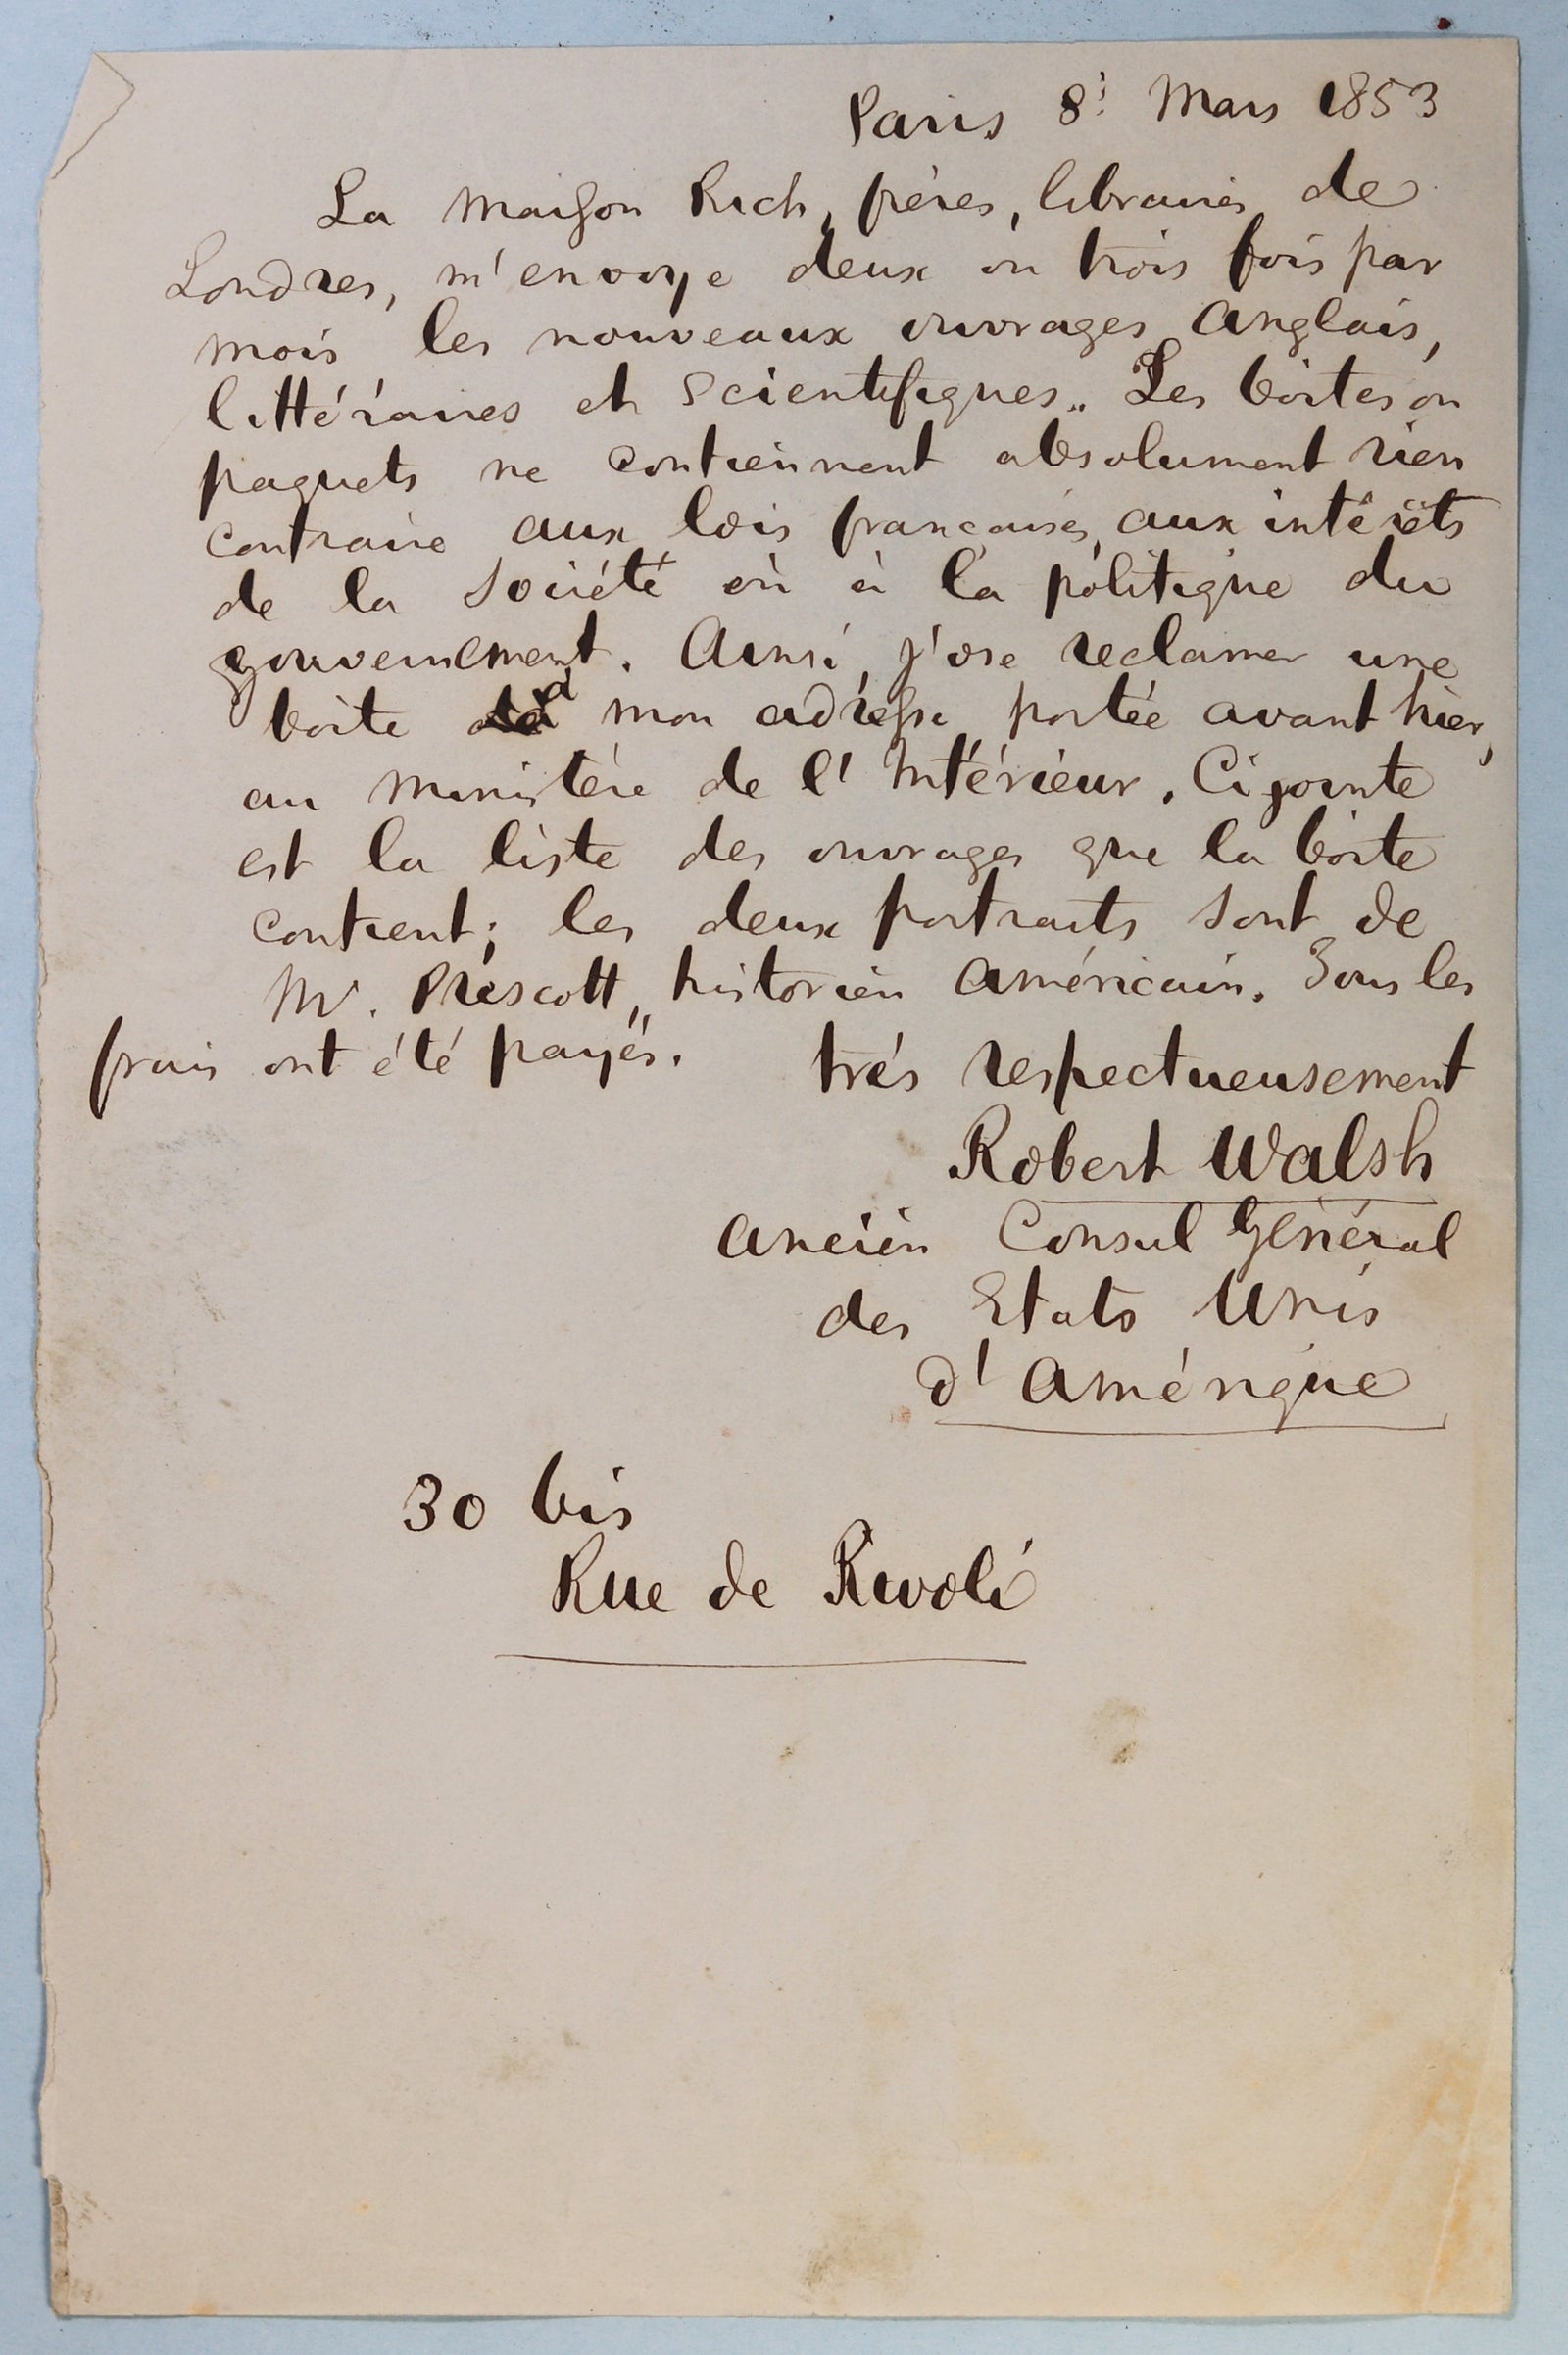 Paris 8: Mars 1853
La maison Rich, frères, libraires de
Londres, m'envoye deux ou trois fois par
mois les nouveaux ouvrages anglais,
littéraires et scientifiques. Les boites ou
paquets ne contiennent absolument rien
contraire aux lois françaises, aux intérêts
de la Société ou à la politique du
gouvernement. Ainsi, j'ose reclamer une
boite à mon adresse, portée avant hier,
au ministère de l'Intérieur. Ci jointe
est la liste des ouvrages que la boite
contient; les deux portraits sont de
Mr. Prescott, historien américain. Tous les
frais ont été payés.
très respectueusement
Robert Walsh
ancien Consul Général
des Etats Unis
d'Amérique
30 bis
Rue de Rivoli